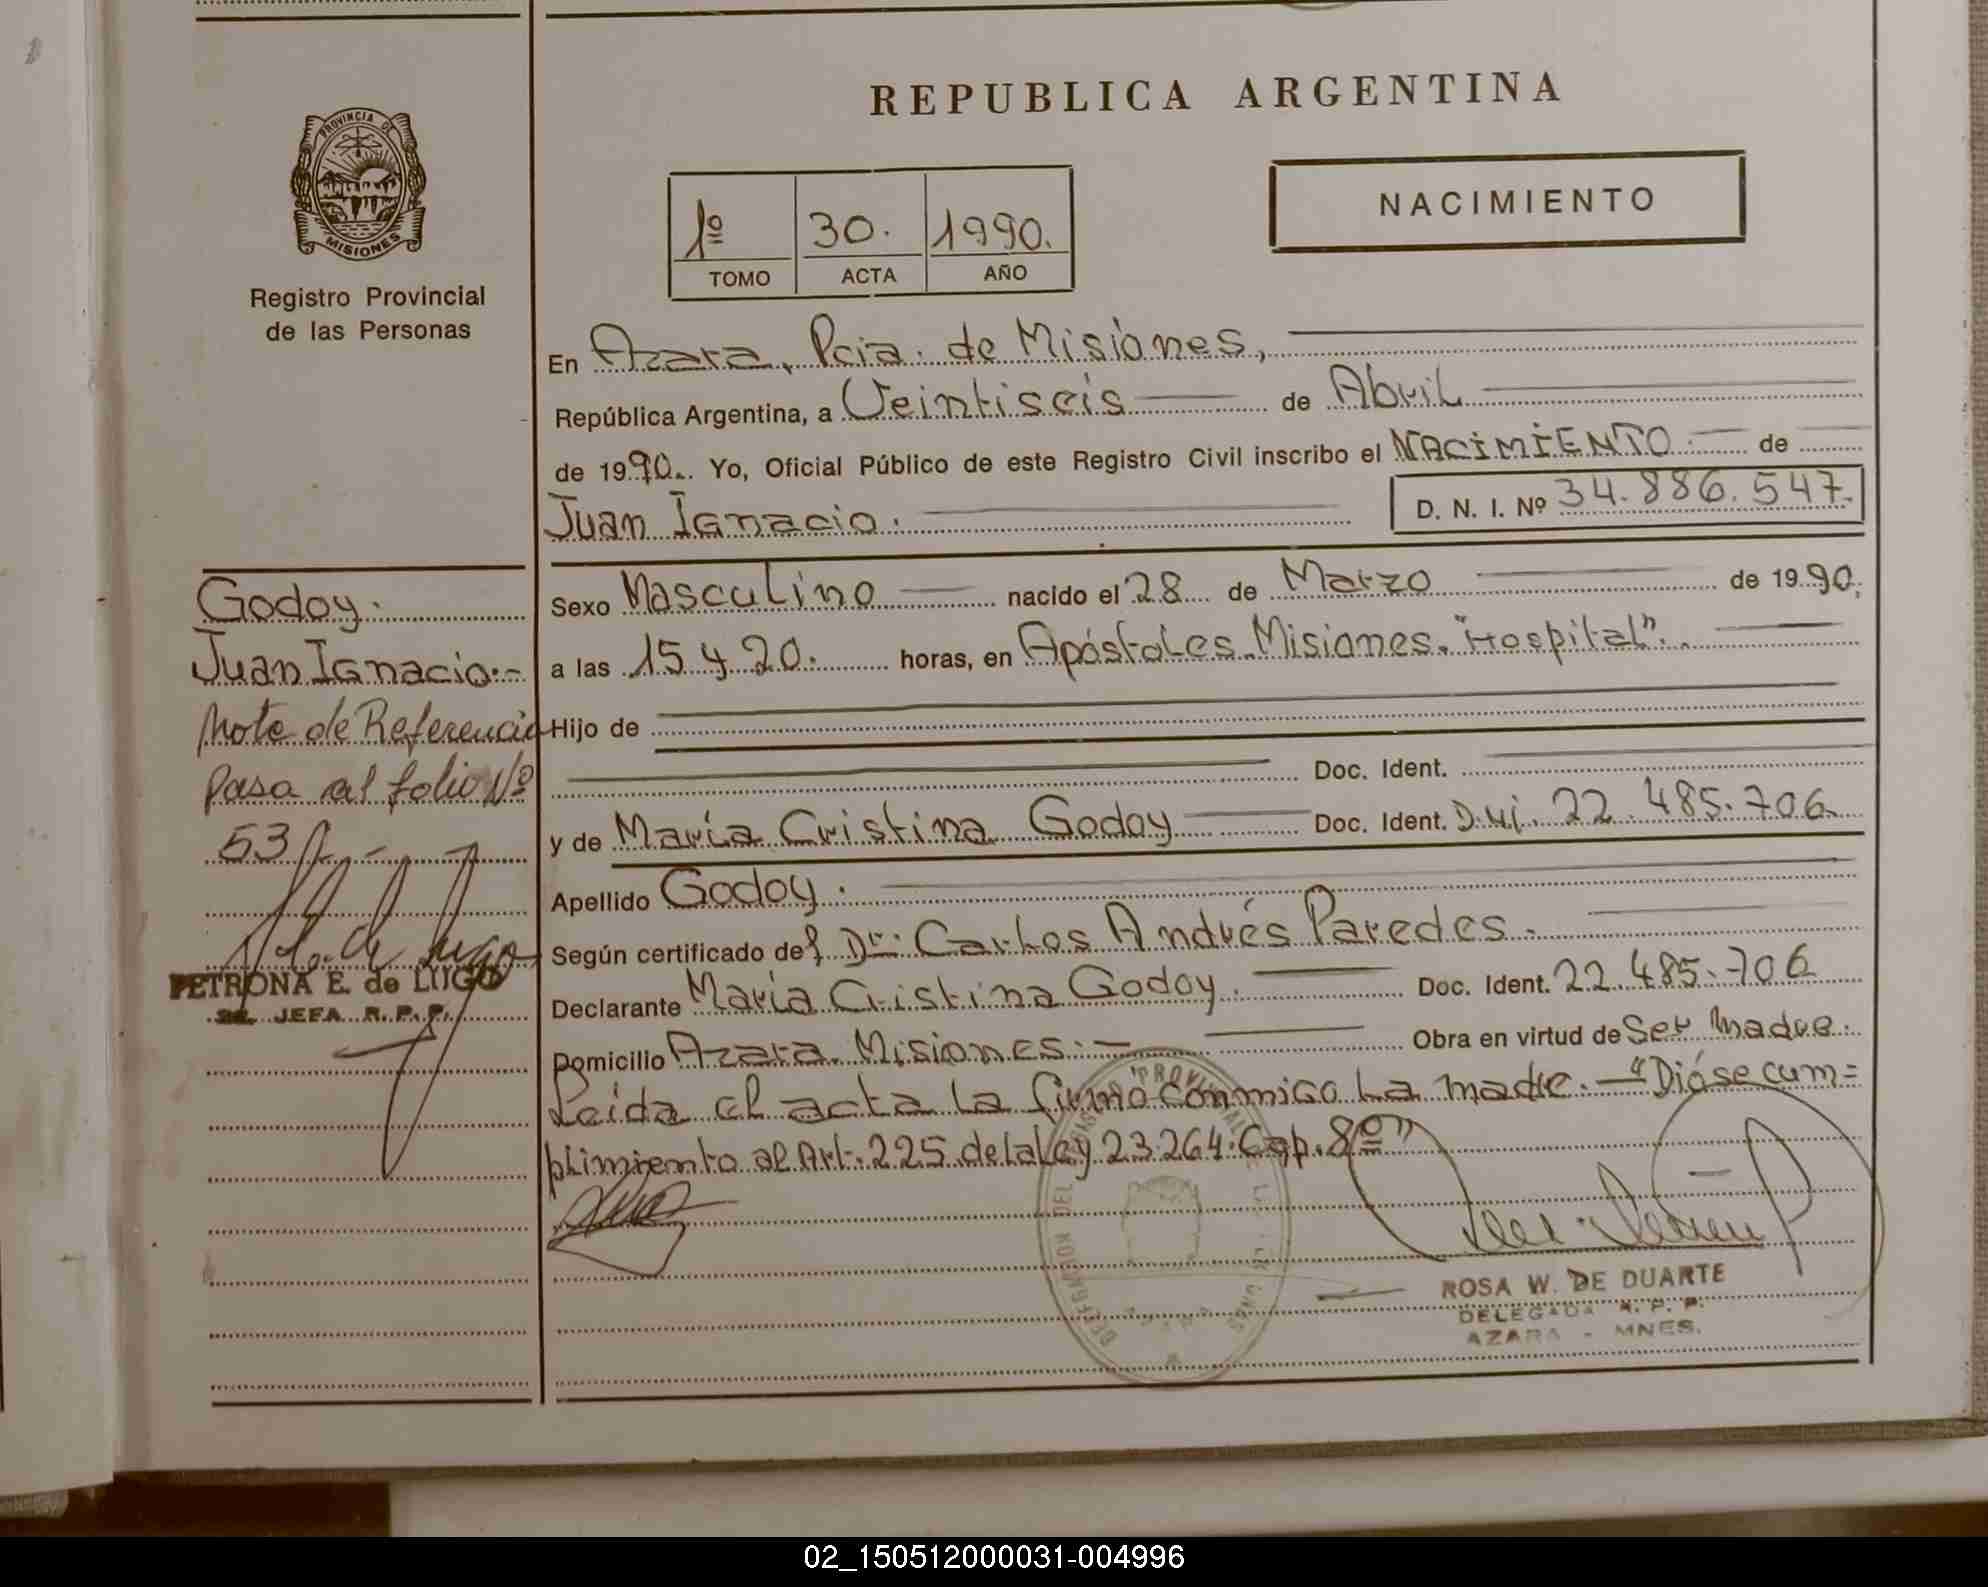 REPUBLICA ARGENTINA
PROVINCIA DE
MISIONES
Registro Provincial
de las Personas
NACIMIENTO
1º 30. 1990.
TOMO ACTA AÑO
En Azara, Pcia. de Misiones,
República Argentina, a Veintiseis de Abril
de 1990. Yo, Oficial Público de este Registro Civil inscribo el NACIMIENTO. de
Juan Ignacio. D. N. I. Nº 34.886.547.
Godoy.
Juan Ignacio.-
Nota de Referencia
pasa al folio Nº
53
PETRONA E. de LUGO
JEFA R. P. P.
Sexo Masculino nacido el 28 de Marzo de 1990,
a las 15 y 20. horas, en Apóstoles. Misiones. "Hospital".
Hijo de
Doc. Ident.
y de María Cristina Godoy Doc. Ident. D.N.I. 22.485.706
Apellido Godoy.
Según certificado del Dr. Carlos Andrés Paredes.
Declarante María Cristina Godoy. Doc. Ident. 22.485.706
Domicilio Azara. Misiones.- Obra en virtud de Ser madre.
Leída el acta la firmó conmigo La madre.- "Dióse cum=
plimiento al Art. 225 de la Ley 23.264. Cap. 8º"
ROSA W. DE DUARTE
DELEGADA R. P. P.
AZARA - MNES.
02_150512000031-004996